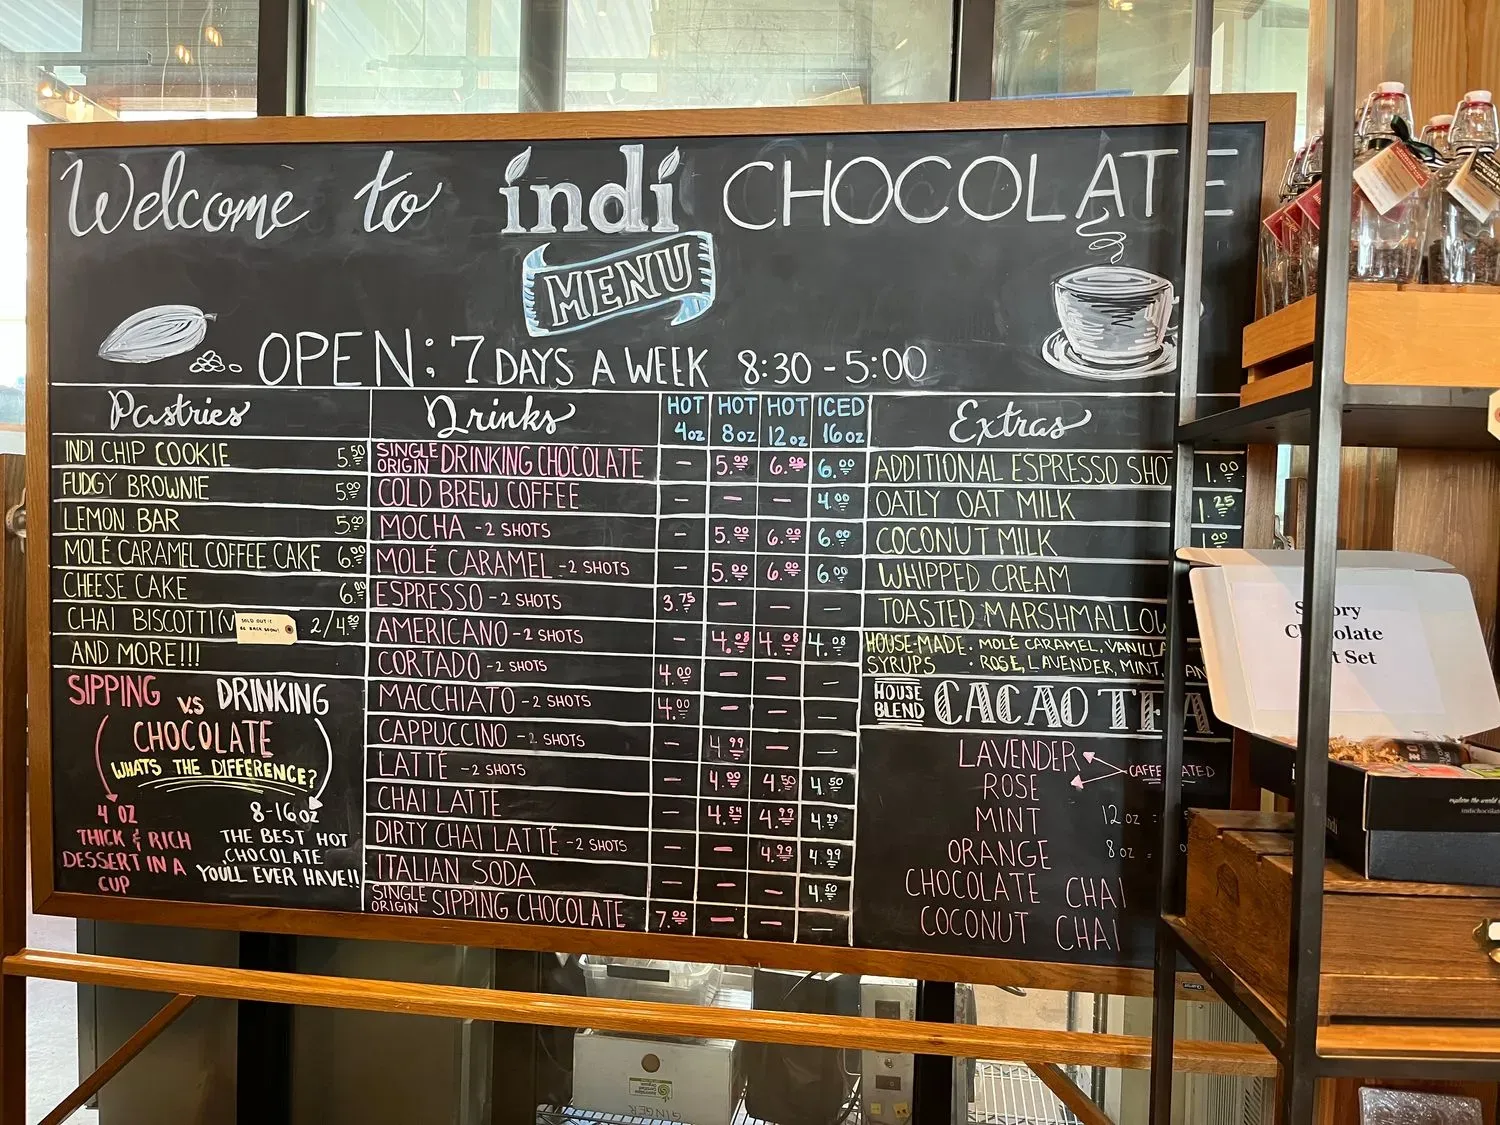 Welcome to indi CHOCOLATE
MENU
OPEN: 7 DAYS A WEEK 8:30 - 5:00
Pastries
INDI CHIP COOKIE 5.50
FUDGY BROWNIE 5.00
LEMON BAR 5.00
MOLÉ CARAMEL COFFEE CAKE 6.00
CHEESE CAKE 6.00
CHAI BISCOTTI 2/4.50
SOLD OUT :(
BE BACK SOON!
AND MORE!!!
SIPPING VS DRINKING
CHOCOLATE
WHATS THE DIFFERENCE?
4 OZ
THICK & RICH
DESSERT IN A
CUP
8-16 OZ
THE BEST HOT
CHOCOLATE
YOU'LL EVER HAVE!!
Drinks HOT 4oz HOT 8oz HOT 12oz ICED 16oz
SINGLE ORIGIN DRINKING CHOCOLATE — 5.00 6.00 6.00
COLD BREW COFFEE — — — 4.00
MOCHA - 2 SHOTS — 5.00 6.00 6.00
MOLÉ CARAMEL - 2 SHOTS — 5.00 6.00 6.00
ESPRESSO - 2 SHOTS 3.75 — — —
AMERICANO - 2 SHOTS — 4.08 4.08 4.08
CORTADO - 2 SHOTS 4.00 — — —
MACCHIATO - 2 SHOTS 4.00 — — —
CAPPUCCINO - 2 SHOTS — 4.99 — —
LATTÉ - 2 SHOTS — 4.00 4.50 4.50
CHAI LATTE — 4.54 4.99 4.99
DIRTY CHAI LATTÉ - 2 SHOTS — — 4.99 4.99
ITALIAN SODA — — — 4.50
SINGLE ORIGIN SIPPING CHOCOLATE 7.00 — — —
Extras
ADDITIONAL ESPRESSO SHO 1.00
OATLY OAT MILK 1.25
COCONUT MILK 1.00
WHIPPED CREAM
TOASTED MARSHMALLOW
HOUSE-MADE · MOLÉ CARAMEL, VANILLA
SYRUPS · ROSE, LAVENDER, MINT,
HOUSE BLEND CACAO TEA
LAVENDER
ROSE
CAFFE ATED
MINT
ORANGE
CHOCOLATE CHAI
COCONUT CHAI
12 oz =
8 oz =
Chocolate
Set
GINGER